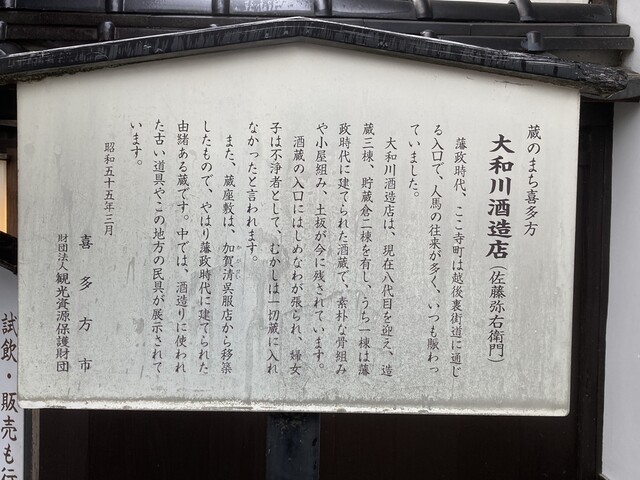 蔵のまち喜多方
大和川酒造店(佐藤弥右衛門)
藩政時代、ここ寺町は越後裏街道に通じ
る入口で、人馬の往来が多く、いつも賑わっ
ていました。
大和川酒造店は、現在八代目を迎え、造
蔵三棟、貯蔵倉二棟を有し、うち一棟は藩
政時代に建てられた酒蔵で、素朴な骨組み
や小屋組み、土坂が今に残されています。
酒蔵の入口にはしめなわが張られ、婦女
子は不浄者として、むかしは一切蔵に入れ
なかったと言われます。
また、蔵座敷は、加賀清呉服店から移築
したもので、やはり藩政時代に建てられた
由緒ある蔵です。中では、酒造りに使われ
た古い道具や、この地方の民具が展示されて
います。
昭和五十五年三月
喜多方市
財団法人観光資源保護財団
試飲・販売も行